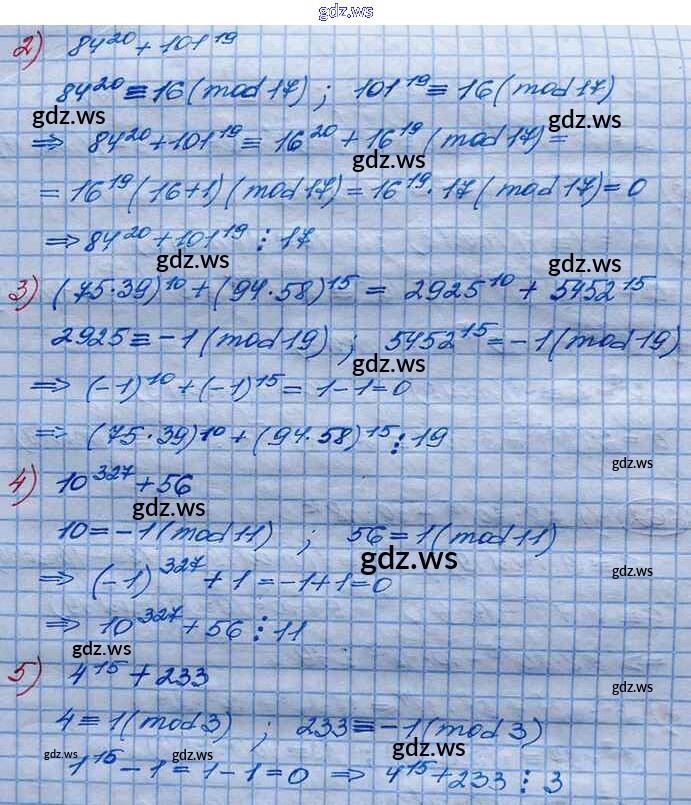 gdz.ws
2) 84²⁰ + 101¹⁹
84²⁰ ≡ 16 (mod 17) ; 101¹⁹ ≡ 16 (mod 17)
gdz.ws gdz.ws
⇒ 84²⁰ + 101¹⁹ ≡ 16²⁰ + 16¹⁹ (mod 17) =
gdz.ws
= 16¹⁹ (16 + 1) (mod 17) = 16¹⁹ · 17 (mod 17) = 0
⇒ 84²⁰ + 101¹⁹ ⋮ 17
gdz.ws gdz.ws
3) (75·39)¹⁰ + (94·58)¹⁵ = 2925¹⁰ + 5452¹⁵
2925 ≡ -1 (mod 19) ; 5452¹⁵ = -1 (mod 19)
gdz.ws
⇒ (-1)¹⁰ + (-1)¹⁵ = 1 - 1 = 0
⇒ (75·39)¹⁰ + (94·58)¹⁵ ⋮ 19
gdz.ws
4) 10³²⁷ + 56
gdz.ws
10 = -1 (mod 11) ; 56 = 1 (mod 11)
gdz.ws gdz.ws
⇒ (-1)³²⁷ + 1 = -1 + 1 = 0
⇒ 10³²⁷ + 56 ⋮ 11
gdz.ws
5) 4¹⁵ + 233
gdz.ws
4 ≡ 1 (mod 3) ; 233 ≡ -1 (mod 3)
gdz.ws gdz.ws gdz.ws
1¹⁵ - 1 = 1 - 1 = 0 ⇒ 4¹⁵ + 233 ⋮ 3
gdz.ws